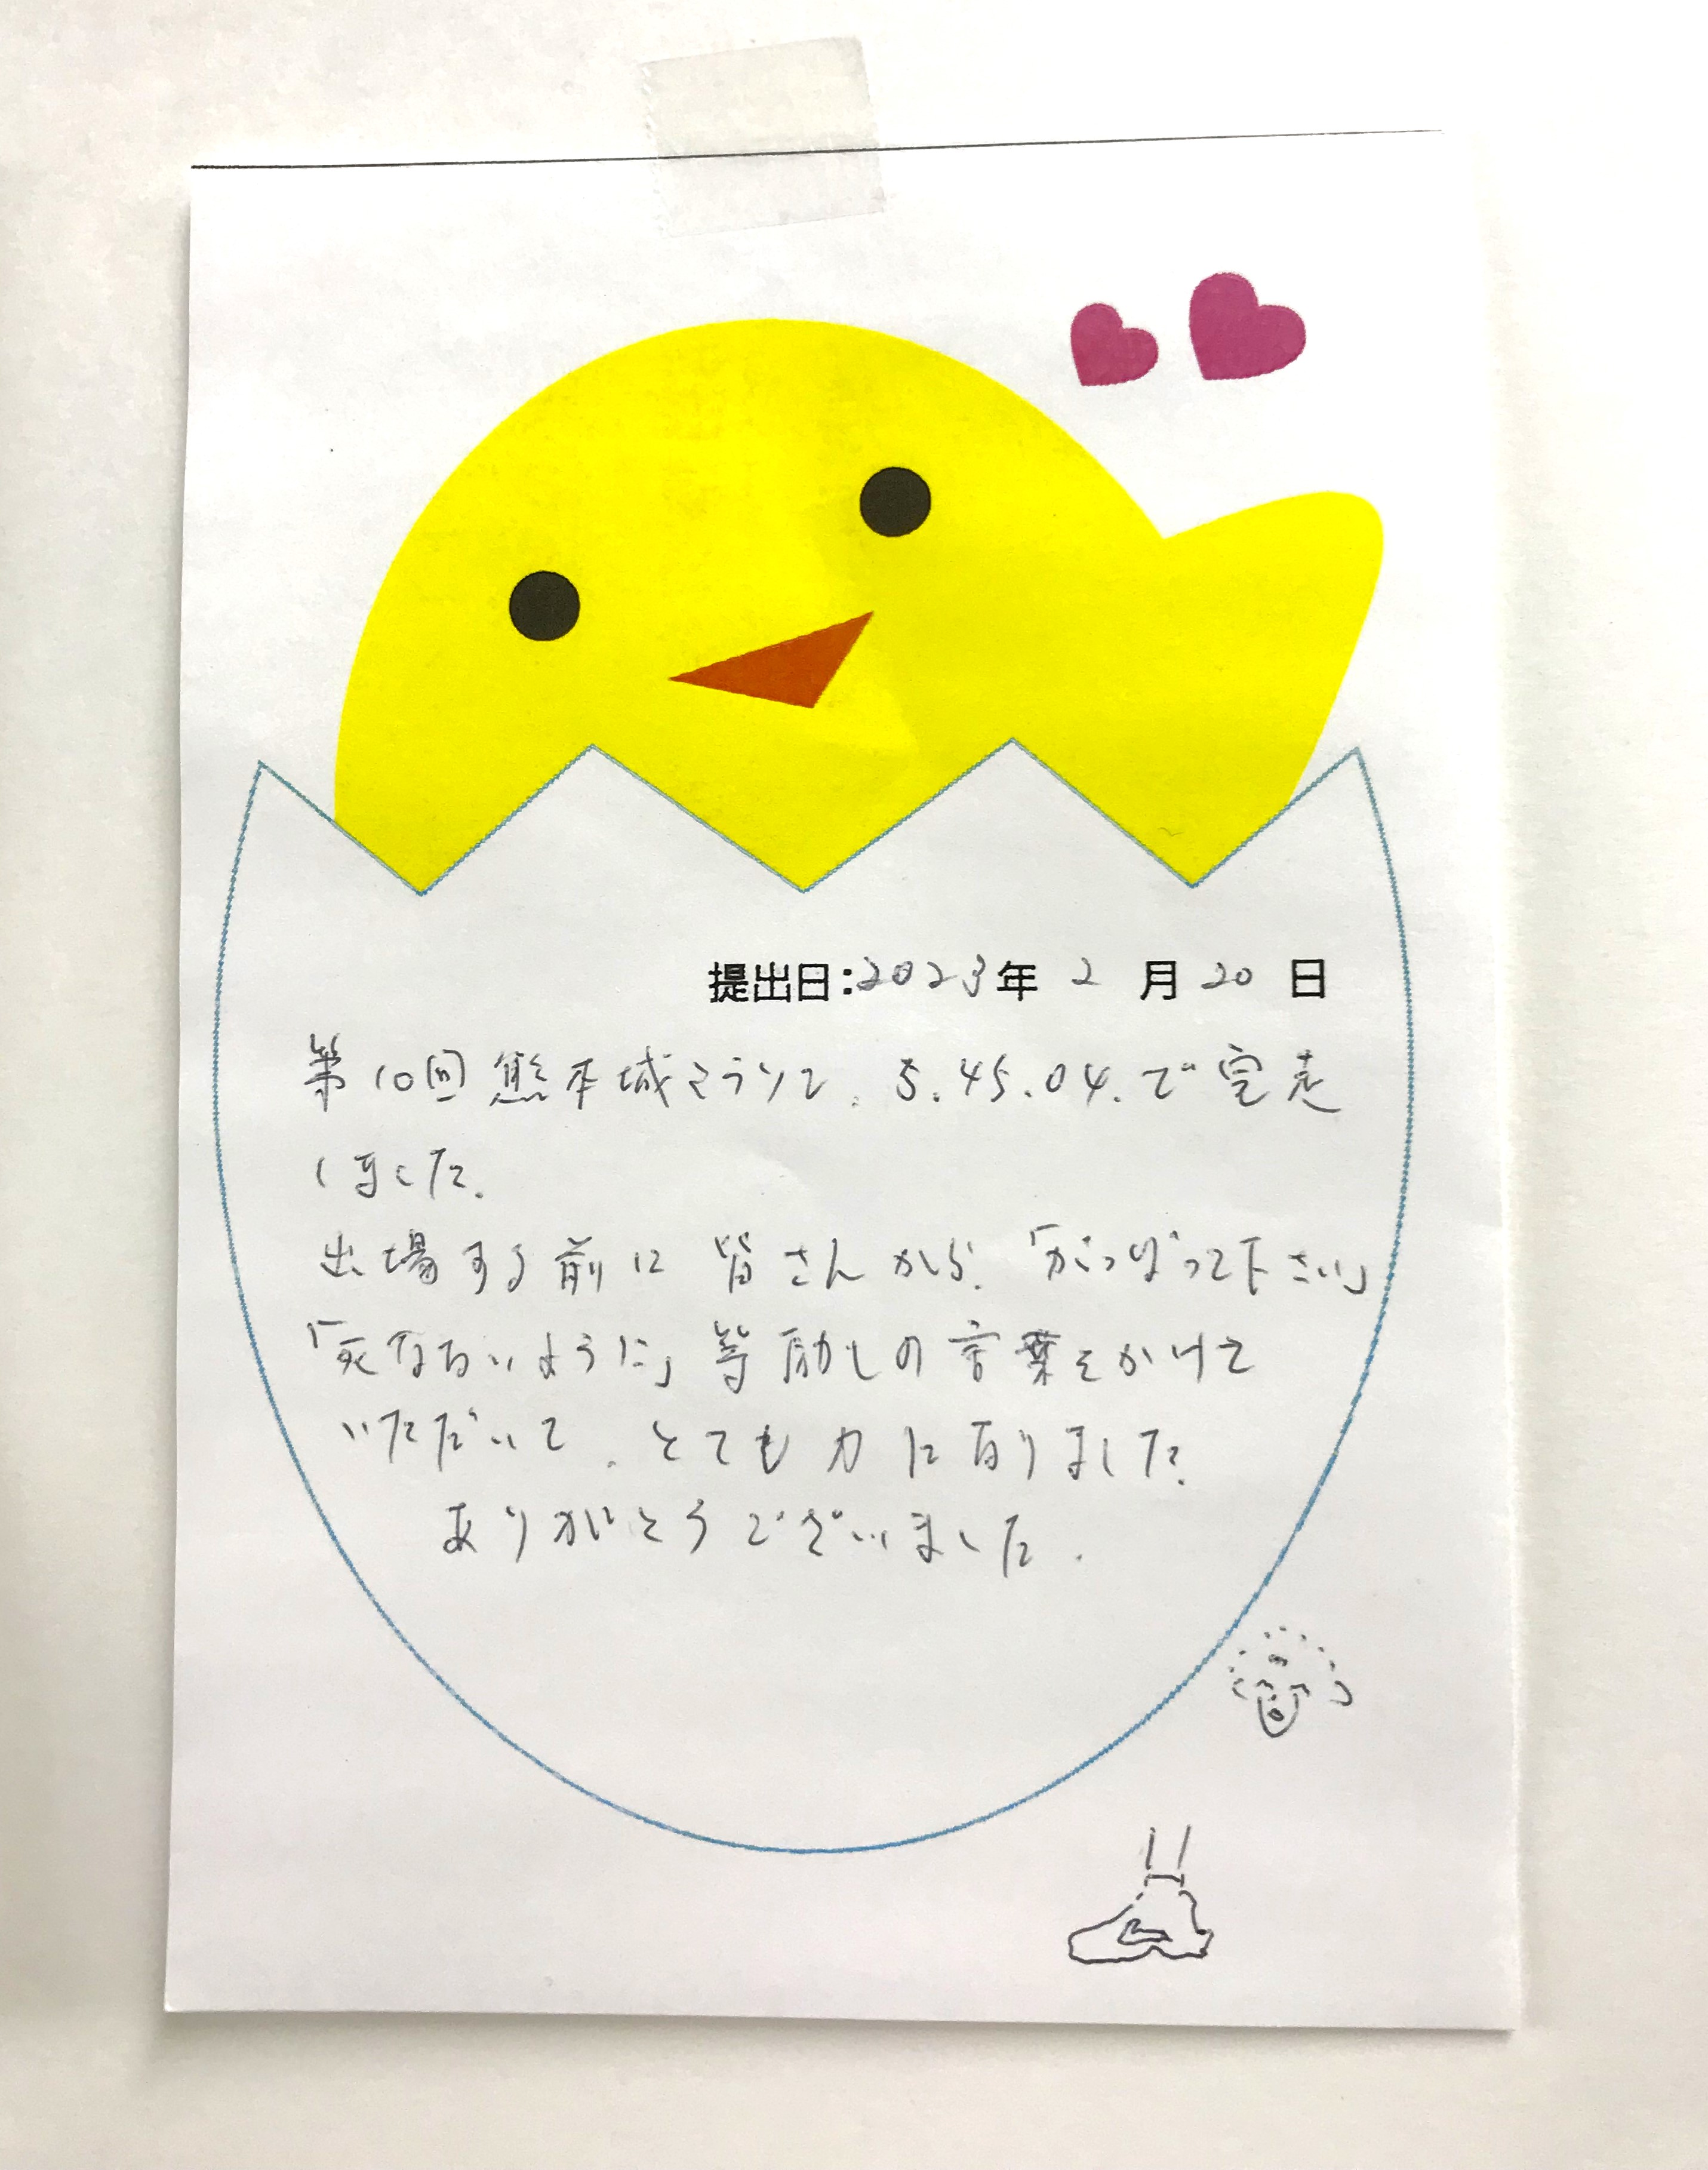 提出日:2023年 2 月 20 日
第10回熊本城マラソン、5.45.04.で完走
しました。
出場する前に皆さんから、「がんばって下さい」
「死なないように」等励しの言葉をかけて
いただいて、とても力に有りました。
ありがとうございました。